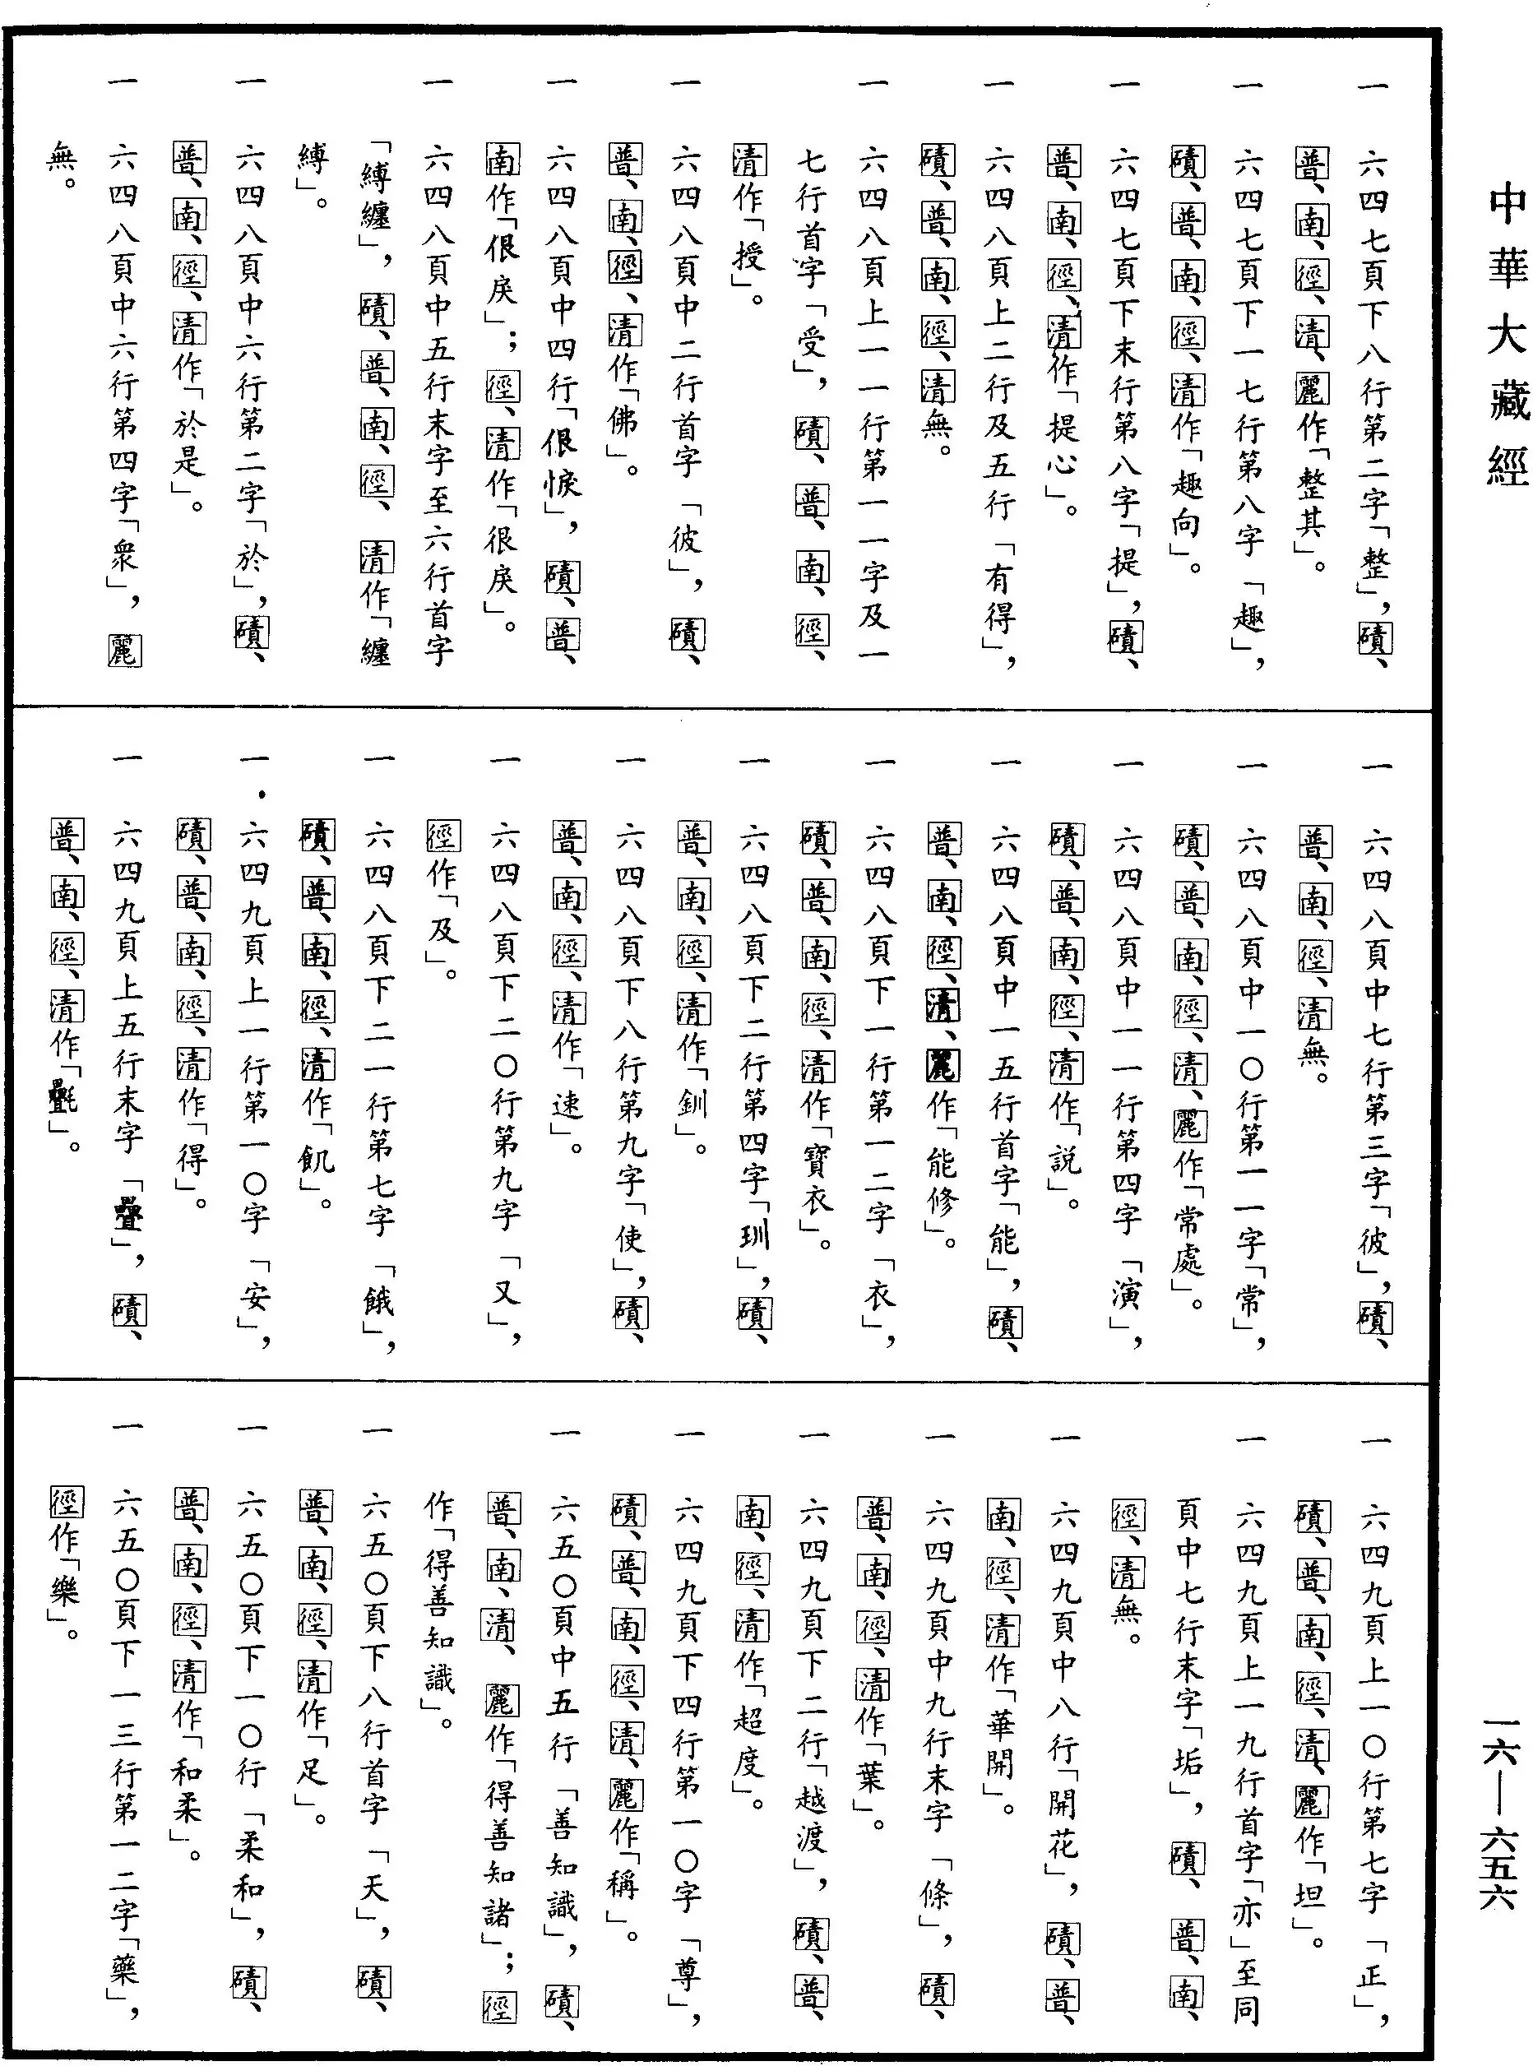 中華大藏經
一　六四七頁下八行第二字「整」，磧、
普、南、徑、清、麗作「整其」。
一　六四七頁下一七行第八字「趣」，
磧、普、南、徑、清作「趣向」。
一　六四七頁下末行第八字「提」，磧、
普、南、徑、清作「提心」。
一　六四八頁上二行及五行「有得」，
磧、普、南、徑、清無。
一　六四八頁上一一行第一一字及一
七行首字「受」，磧、普、南、徑、
清作「授」。
一　六四八頁中二行首字「彼」，磧、
普、南、徑、清作「佛」。
一　六四八頁中四行「佷悷」，磧、普、
南作「佷戾」；徑、清作「很戾」。
一　六四八頁中五行末字至六行首字
「縛纏」，磧、普、南、徑、清作「纏
縛」。
一　六四八頁中六行第二字「於」，磧、
普、南、徑、清作「於是」。
一　六四八頁中六行第四字「衆」，麗
無。
一　六四八頁中七行第三字「彼」，磧、
普、南、徑、清無。
一　六四八頁中一〇行第一一字「常」，
磧、普、南、徑、清、麗作「常處」。
一　六四八頁中一一行第四字「演」，
磧、普、南、徑、清作「説」。
一　六四八頁中一五行首字「能」，磧、
普、南、徑、清、麗作「能修」。
一　六四八頁下一行第一二字「衣」，
磧、普、南、徑、清作「寶衣」。
一　六四八頁下二行第四字「玔」，磧、
普、南、徑、清作「釧」。
一　六四八頁下八行第九字「使」，磧、
普、南、徑、清作「速」。
一　六四八頁下二〇行第九字「又」，
徑作「及」。
一　六四八頁下二一行第七字「餓」，
磧、普、南、徑、清作「飢」。
一．六四九頁上一行第一〇字「安」，
磧、普、南、徑、清作「得」。
一　六四九頁上五行末字「疊」，磧、
普、南、徑、清作「氎」。
一　六四九頁上一〇行第七字「正」，
磧、普、南、徑、清、麗作「坦」。
一　六四九頁上一九行首字「亦」至同
頁中七行末字「垢」，磧、普、南、
徑、清無。
一　六四九頁中八行「開花」，磧、普、
南、徑、清作「華開」。
一　六四九頁中九行末字「條」，磧、
普、南、徑、清作「葉」。
一　六四九頁下二行「越渡」，磧、普、
南、徑、清作「超度」。
一　六四九頁下四行第一〇字「尊」，
磧、普、南、徑、清、麗作「稱」。
一　六五〇頁中五行「善知識」，磧、
普、南、清、麗作「得善知諸」；徑
作「得善知識」。
一　六五〇頁下八行首字「天」，磧、
普、南、徑、清作「足」。
一　六五〇頁下一〇行「柔和」，磧、
普、南、徑、清作「和柔」。
一　六五〇頁下一三行第一二字「藥」，
徑作「樂」。
一六—六五六